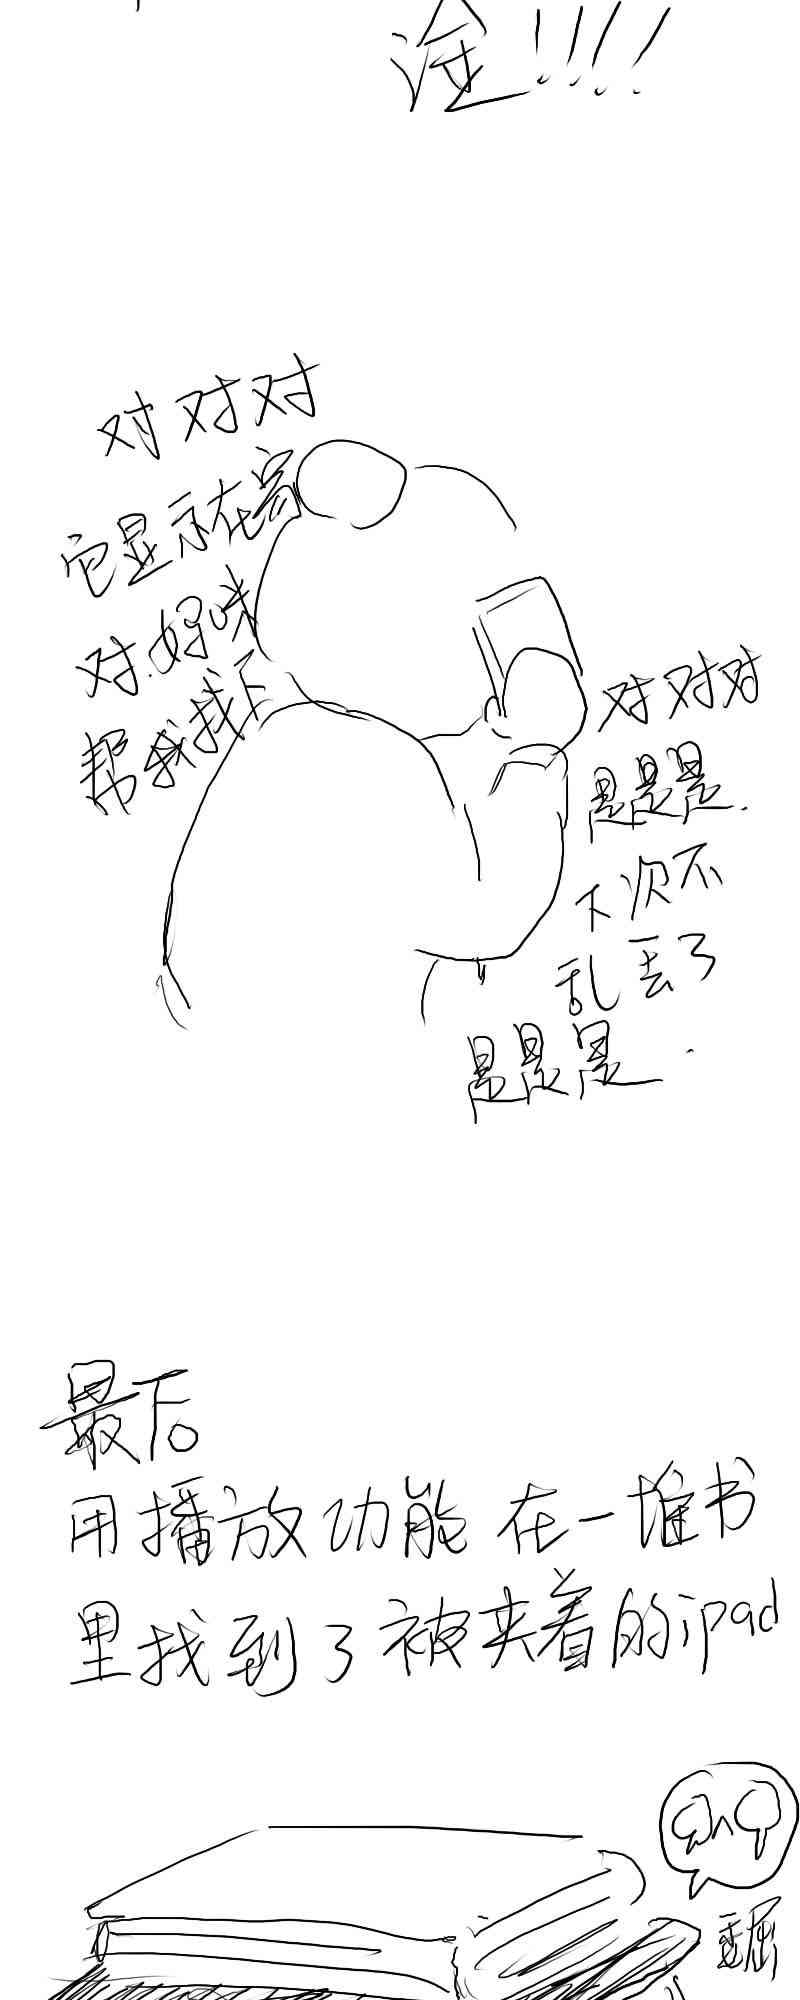 途!!!!
对对对
它显示在家
对.妈咪
帮我找下
对对对
是是是.
下次不
乱丢了
是是是.
最后
用播放功能在一堆书
里找到了被夹着的ipad